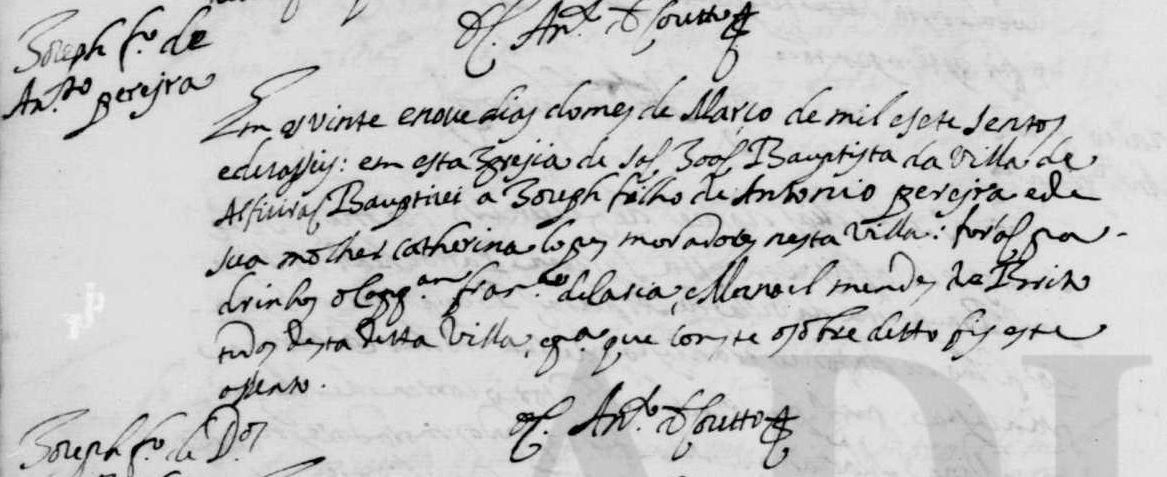 Joseph f.º de
An.to pereyra
P. An.to do Soutto
Em os vinte e nove dias do mes de Março de mil e sete sentos
e desasseis: em esta Igreija de São João Bauptista da Villa de
Bauptizei a Joseph filho de Antonio pereyra e de
sua molher Catherina lopes moradores nesta Villa: forão pa-
drinhos o fran.co Manoel mendes de Britto
todos desta ditta Villa, e p.a que conste o sobre ditto fis este
assento.
P. An.to do Soutto
Joseph f.º de D.os